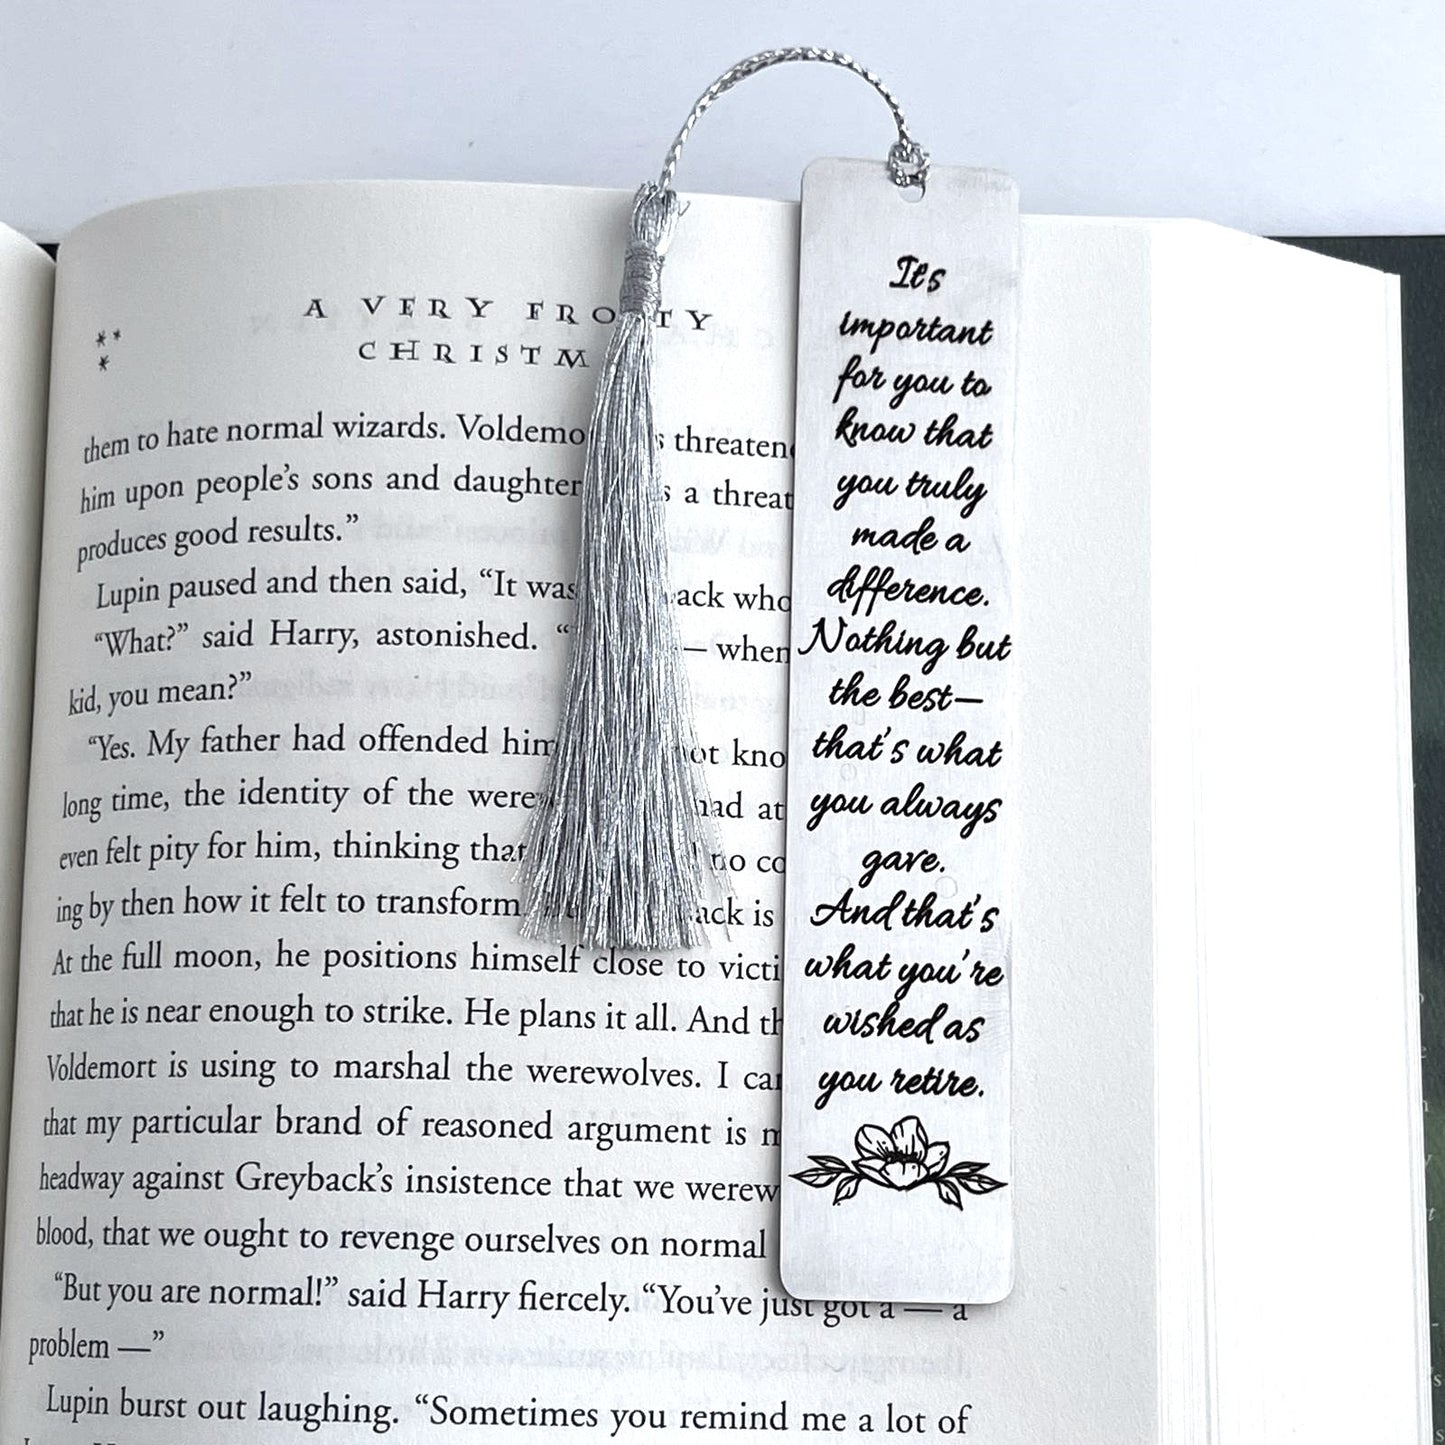 A VERY FRO TY
CHRISTM
them to hate normal wizards. Voldemo s threaten
him upon people's sons and daughter s a threat
produces good results.”
Lupin paused and then said, “It was ack who
“What?” said Harry, astonished. “ — when
kid, you mean?”
“Yes. My father had offended him ot kno
long time, the identity of the were had at
even felt pity for him, thinking that no co
ing by then how it felt to transform. ack is
At the full moon, he positions himself close to victi
that he is near enough to strike. He plans it all. And th
Voldemort is using to marshal the werewolves. I can
that my particular brand of reasoned argument is m
headway against Greyback's insistence that we werew
blood, that we ought to revenge ourselves on normal
“But you are normal!” said Harry fiercely. “You've just got a — a
problem —”
Lupin burst out laughing. “Sometimes you remind me a lot of
It's
important
for you to
know that
you truly
made a
difference.
Nothing but
the best—
that's what
you always
gave.
And that's
what you're
wished as
you retire.